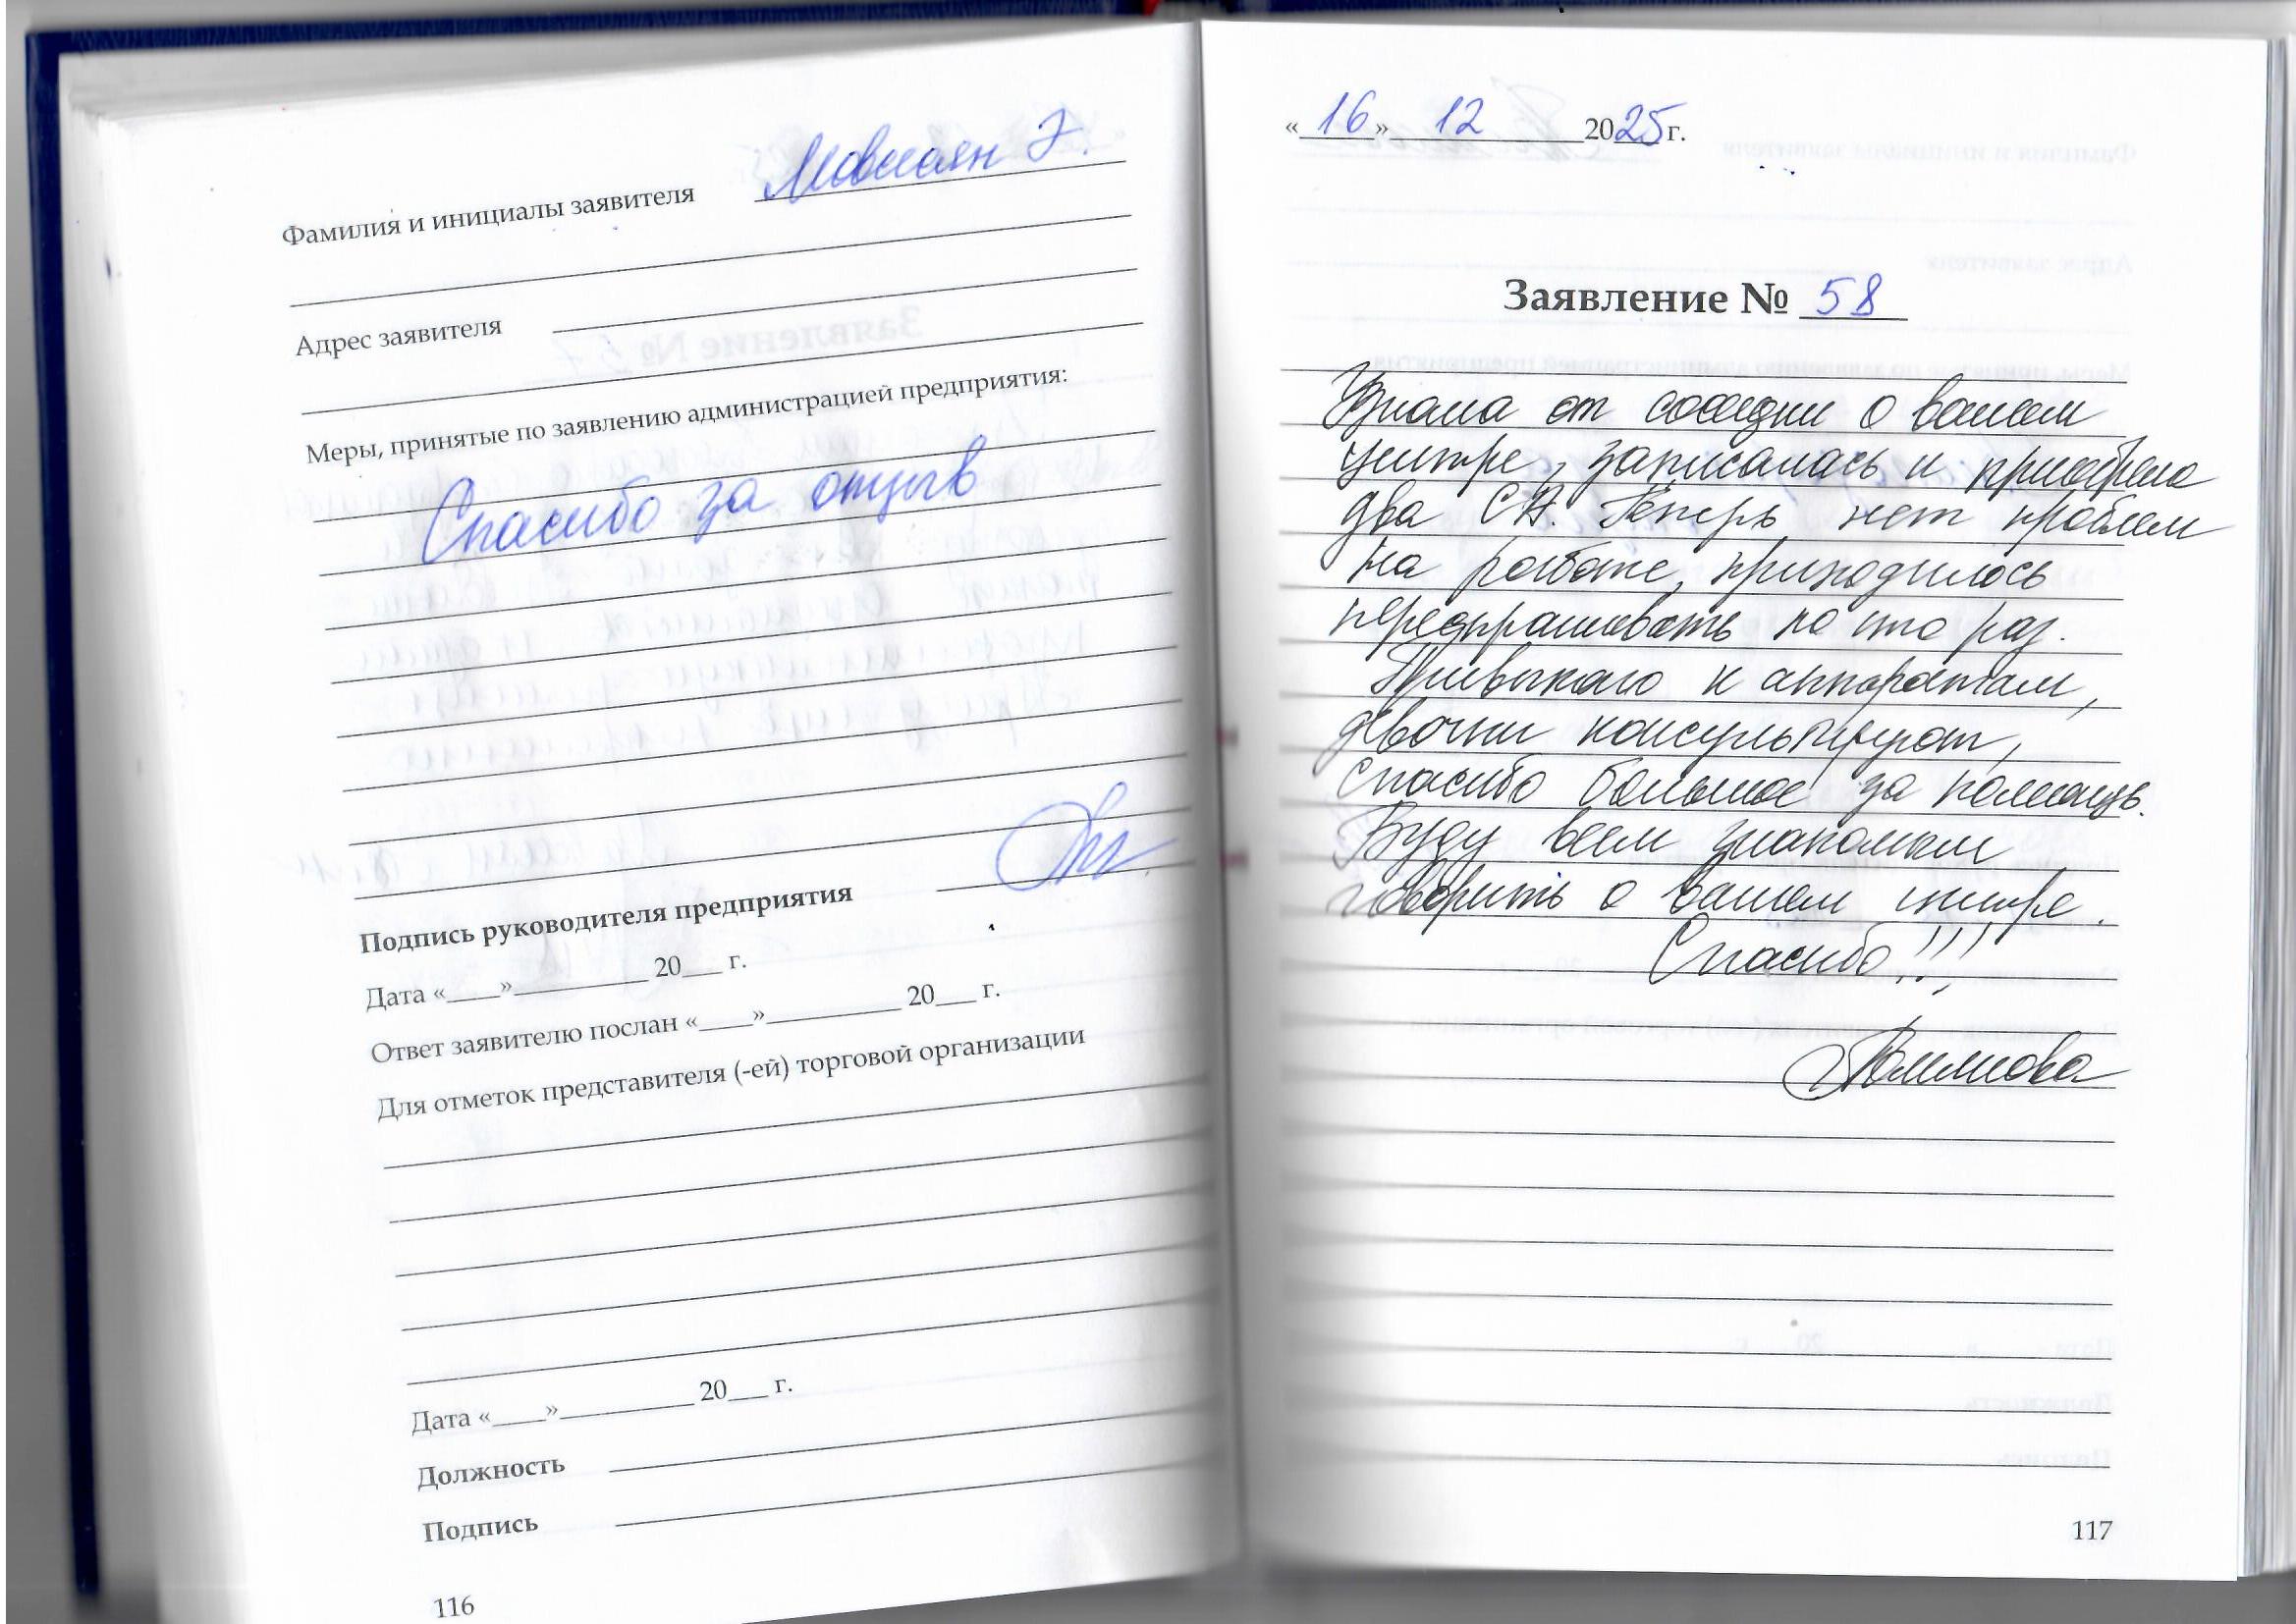 Фамилия и инициалы заявителя Мовсисян Э.
Адрес заявителя
Меры, принятые по заявлению администрацией предприятия:
Спасибо за отзыв
Подпись руководителя предприятия
Дата «____»__________ 20___ г.
Ответ заявителю послан «____»__________ 20___ г.
Для отметок представителя (-ей) торговой организации
Дата «____»__________ 20___ г.
Должность
Подпись
116
«16» 12 2025 г.
Заявление № 58
Узнала от соседки о вашем
центре, записалась и приобрела
два СА. Теперь нет проблем
на работе, приходилось
переспрашивать по сто раз.
Привыкаю к аппаратам,
девочки консультируют,
спасибо большое за помощь.
Буду всем знакомым
говорить о вашем центре.
Спасибо!!!
117